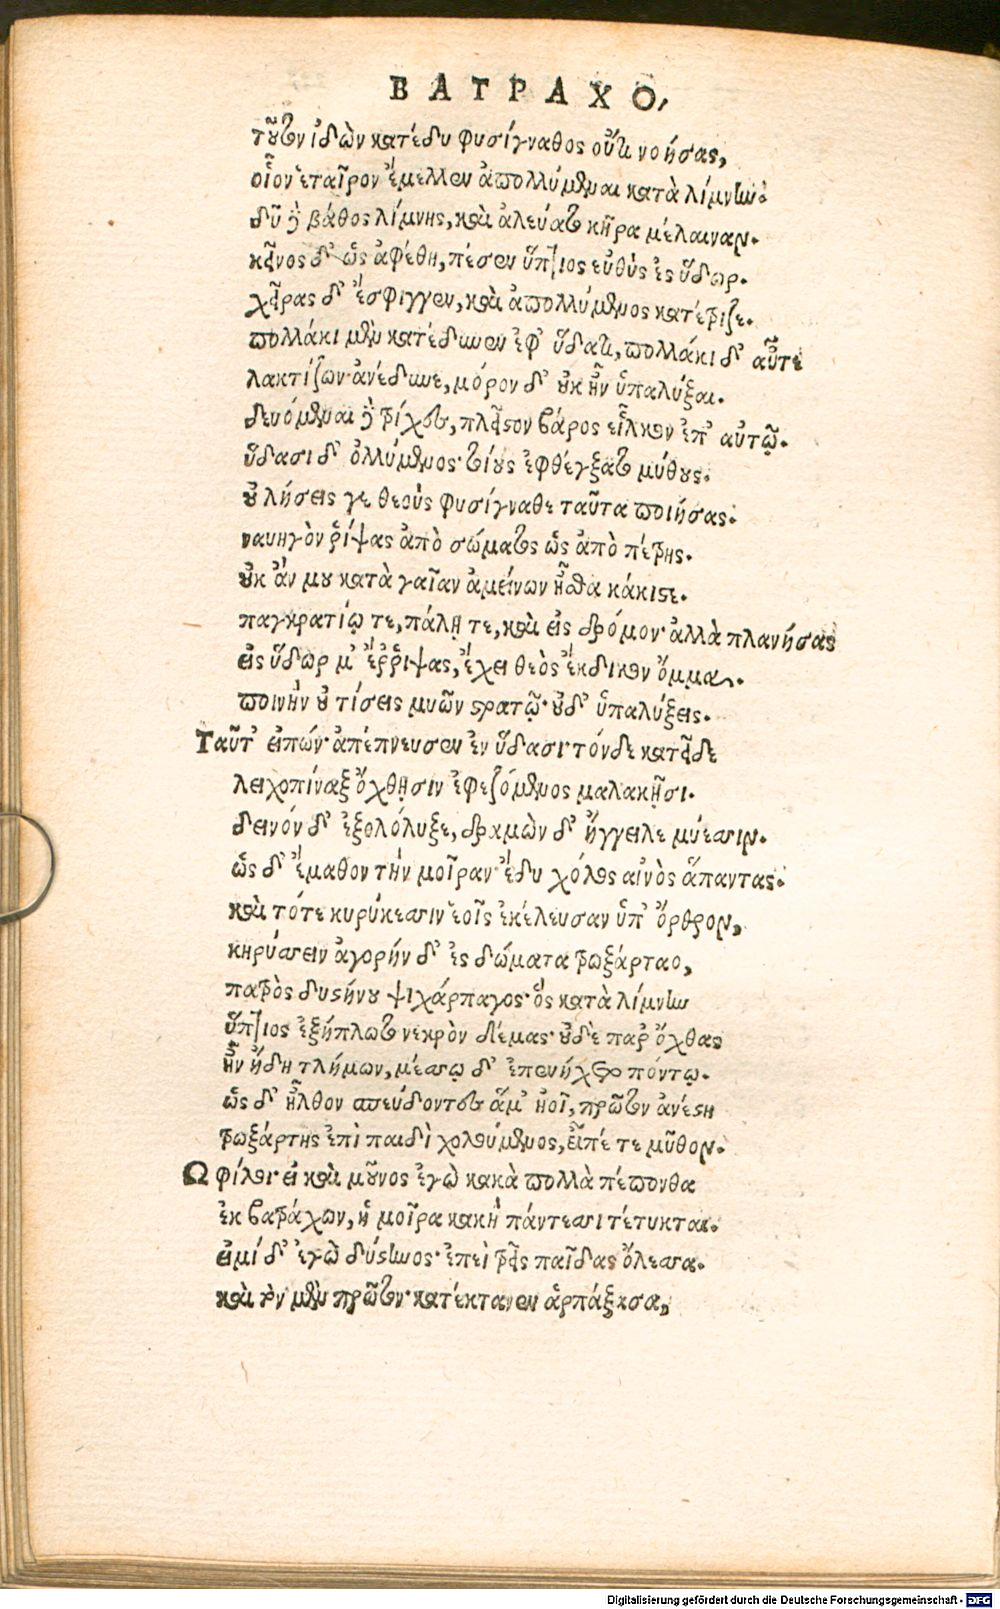 ΒΑΤΡΑΧΟ,
τοῦτον ἰδὼν κατέδυ φυσίγναθος οὔτι νοήσας,
οἷον ἑταῖρον ἔμελλεν ἀπολλύμεναι κατὰ λίμνην·
δῦ δὲ βάθος λίμνης, καὶ ἀλεύατο κῆρα μέλαιναν.
κεῖνος δ' ὡς ἀφέθη, πέσεν ὕπτιος εὐθὺς ἐς ὕδωρ.
χεῖρας δ' ἔσφιγγεν, καὶ ἀπολλύμενος κατέτριζε.
πολλάκι μὲν κατέδυνεν ἐφ' ὕδατι, πολλάκι δ' αὖτε
λακτίζων ἀνέδυνε, μόρον δ' οὐκ ἦν ὑπαλύξαι.
δευόμεναι δὲ τρίχες, πλεῖστον βάρος εἷλκον ἐπ' αὐτῷ.
ὕδασι δ' ὀλλύμενος· τοίους ἐφθέγξατο μύθους.
οὐ λήσεις γε θεοὺς φυσίγναθε ταῦτα ποιήσας.
ναυηγὸν ῥίψας ἀπὸ σώματος ὡς ἀπὸ πέτρης.
οὐκ ἄν μου κατὰ γαῖαν ἀμείνων ἦσθα κάκιστε.
παγκρατίῳ τε, πάλῃ τε, καὶ εἰς δρόμον· ἀλλὰ πλανήσας
εἰς ὕδωρ μ' ἔῤῥιψας, ἔχει θεὸς ἔκδικον ὄμμα.
ποινὴν οὐ τίσεις μυῶν στρατῷ· οὐδ' ὑπαλύξεις.
Ταῦτ' εἰπών· ἀπέπνευσεν ἐν ὕδασι· τόνδε κατεῖδε
λειχοπίναξ ὄχθῃσιν ἐφεζόμενος μαλακῇσι.
δεινόν δ' ἐξολόλυξε, δραμὼν δ' ἤγγειλε μύεσσιν.
ὡς δ' ἔμαθον τὴν μοῖραν· ἔδυ χόλος αἰνὸς ἅπαντας.
καὶ τότε κυρύκεσσιν ἑοῖς ἐκέλευσαν ὑπ' ὄρθρον,
κηρύσσειν ἀγορήν δ' ἐς δώματα τρωξάρταο,
πατρὸς δυστήνου ψιχάρπαγος· ὃς κατὰ λίμνην
ὕπτιος ἐξήπλωτο νεκρὸν δέμας· οὐδὲ παρ' ὄχθας
ἦν ἤδη τλήμων, μέσσῳ δ' ἐπενήχετο πόντῳ.
ὡς δ' ἦλθον σπεύδοντες ἅμ' ἠοῖ, πρῶτον ἀνέστη
τρωξάρτης ἐπὶ παιδὶ χολούμενος, εἶπέ τε μῦθον.
Ω φίλοι· εἰ καὶ μοῦνος ἐγὼ κακὰ πολλὰ πέπονθα
ἐκ βατράχων, ἡ μοῖρα κακὴ πάντεσσι τέτυκται.
εἰμί δ' ἐγὼ δύστηνος· ἐπεὶ τρεῖς παῖδας ὄλεσσα.
καὶ τὸν μὲν πρῶτον· κατέκτανεν ἁρπάξασα,
Digitalisierung gefördert durch die Deutsche Forschungsgemeinschaft - DFG